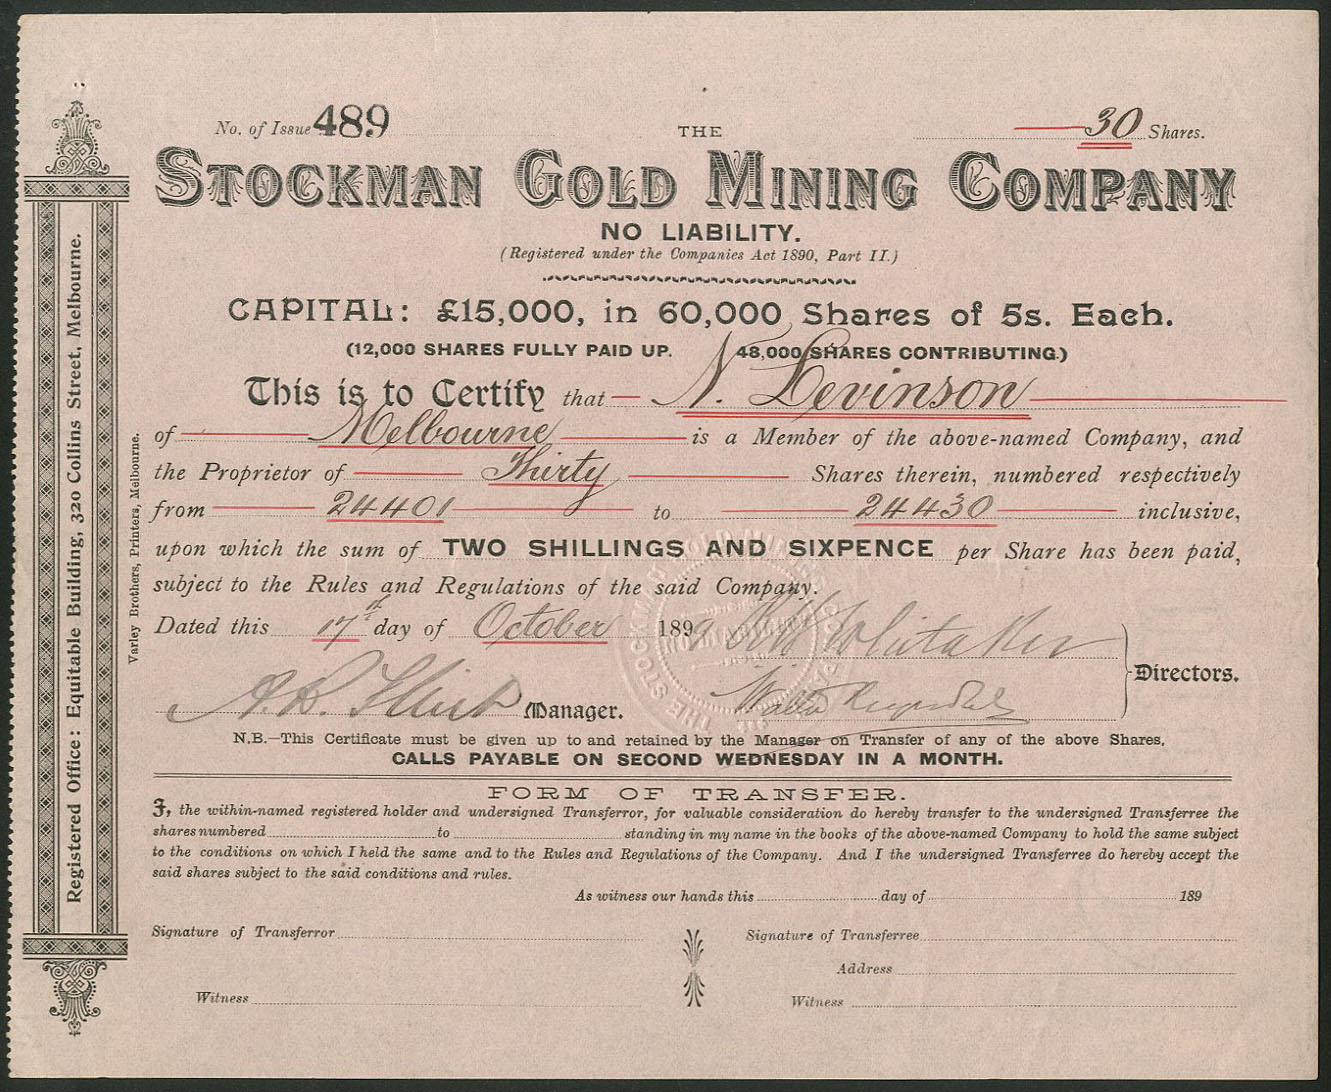 No. of Issue 489
THE
30 Shares.
STOCKMAN GOLD MINING COMPANY
NO LIABILITY.
(Registered under the Companies Act 1890, Part II.)
CAPITAL: £15,000, in 60,000 Shares of 5s. Each.
(12,000 SHARES FULLY PAID UP. 48,000 SHARES CONTRIBUTING.)
This is to Certify that N. Levinson
of Melbourne is a Member of the above-named Company, and
the Proprietor of Thirty Shares therein, numbered respectively
from 24401 to 24430 inclusive,
upon which the sum of TWO SHILLINGS AND SIXPENCE per Share has been paid,
subject to the Rules and Regulations of the said Company.
Dated this 17th day of October 1899 Whitaker
Directors.
Manager. Walter
N.B.—This Certificate must be given up to and retained by the Manager on Transfer of any of the above Shares,
CALLS PAYABLE ON SECOND WEDNESDAY IN A MONTH.
FORM OF TRANSFER.
I, the within-named registered holder and undersigned Transferror, for valuable consideration do hereby transfer to the undersigned Transferree the
shares numbered to standing in my name in the books of the above-named Company to hold the same subject
to the conditions on which I held the same and to the Rules and Regulations of the Company. And I the undersigned Transferree do hereby accept the
said shares subject to the said conditions and rules.
As witness our hands this day of 189
Signature of Transferror
Signature of Transferree
Address
Witness
Witness
Registered Office: Equitable Building, 320 Collins Street, Melbourne.
Varley Brothers, Printers, Melbourne.